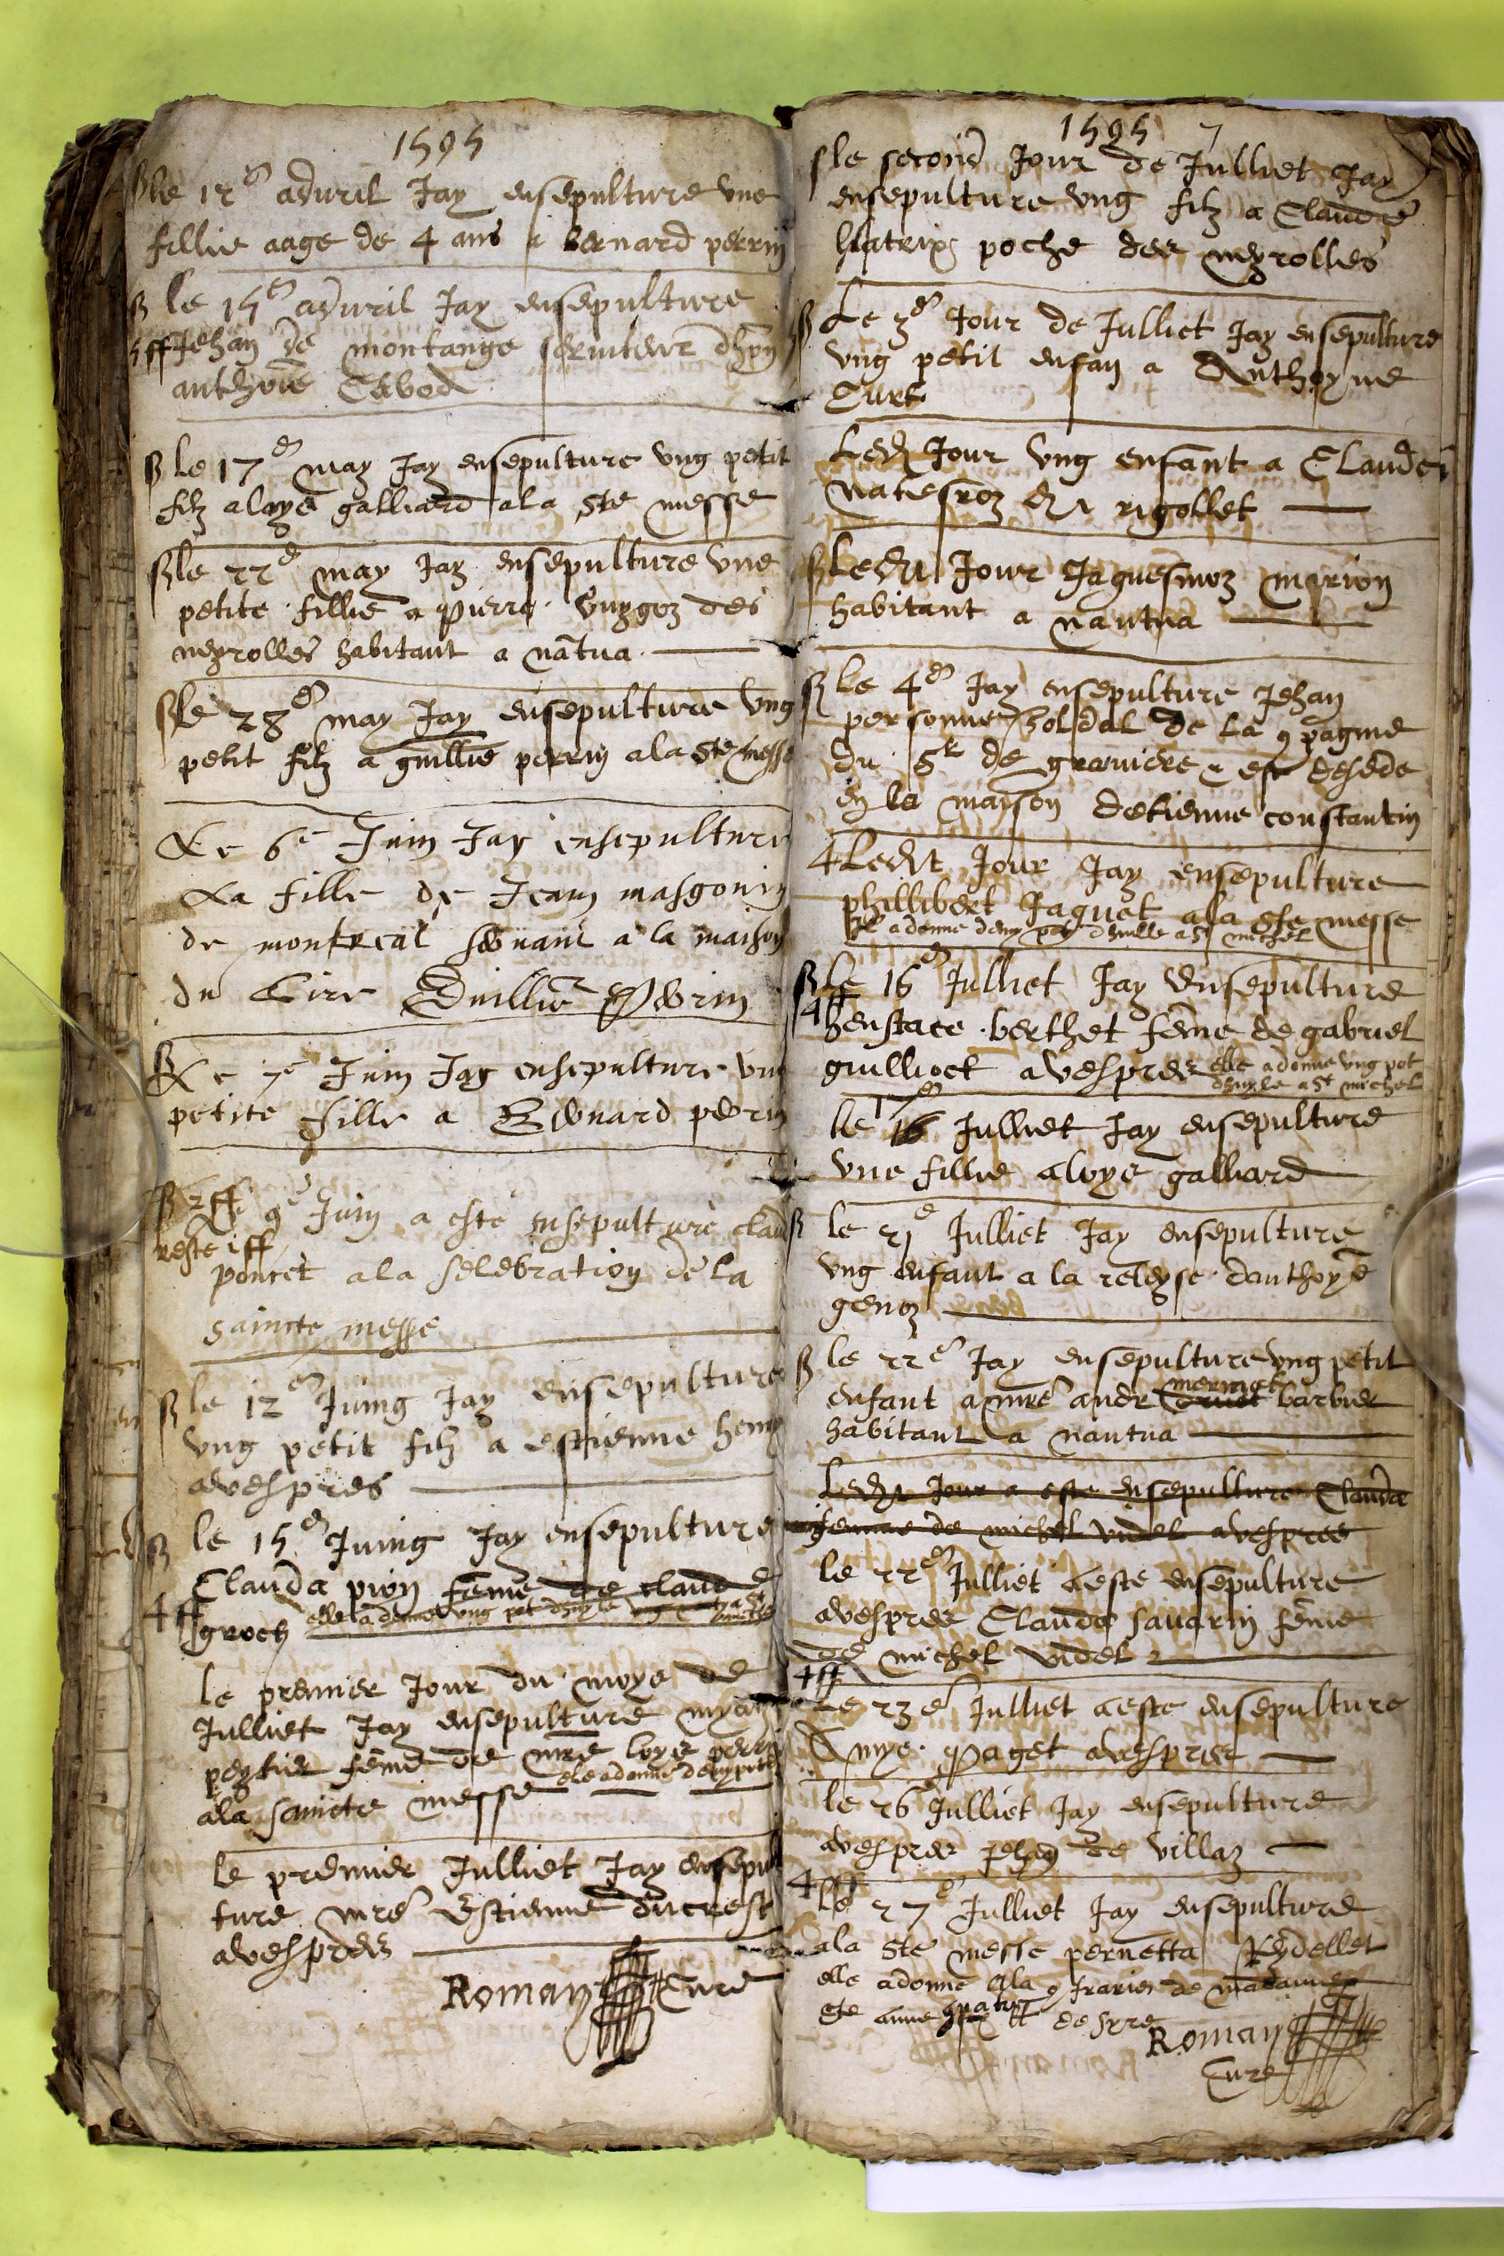 1595
le 12e apvril Jay ensepulture une
fillie aage de 4 ans a bernard perrin
le 15e apvril Jay ensepulture
Jehan de montange serviteur
anthoine
le 17e may Jay ensepulture ung petit
filz a loye galliard a la ste messe
le 22e may Jay ensepulture une
petite fillie a pierre des
neyrolles habitant a nãtua
le 28e may Jay ensepulture ung
petit filz a guillie perrin a la ste messe
Le 6e Juin Jay ensepulture
La fille de Jean masgonin
de montreal servant a la maison
du Sire Guillie Perrin
Le 7e Juin Jay ensepulture une
petite fille a Bernard perrin
2ff Le 9e Juin a este ensepulture claud
reste iff
poncet a la selebration de la
saincte messe
le 12e Juing Jay ensepulture
ung petit filz a estienne
a vespres
le 15e Juing Jay ensepulture
Clauda pion feme de claude
4ff groch elle a donne ung pot dhuyle
le premier Jour du moys de
Julliet Jay ensepulture
feme de mre loys perrin
a la saincte messe elle a donne demy pot
le premier Julliet Jay ensepul
ture mre Estienne ducrest
a vespres
Roman Cure
1595 7
le second Jour de Julliet Jay
ensepulture ung filz a Claude
poche des neyrolles
Le 3e Jour de Julliet Jay ensepulture
ung petit enfan a Anthoyne
Curt
Ledt Jour ung enfant a Claude
dt rigollet
Ledt Jour Jaquesmoz marion
habitant a nantua
le 4e Jay ensepulture Jehan
personne soldat de la 9pagnie
du Sr de est desede
en la mayson detienne constantin
Ledt Jour Jay ensepulture
phillibert Jaquet a la ste messe
Il a donne demy pot dhuille a St michel
Le 16e Julliet Jay ensepulture
4ff
henstace berthet feme de gabriel
guilliot a vespres elle a donne ung pot
dhuyle a St michel
17e
le 16 Julliet Jay ensepulture
une fillie a loys galliard
le 21e Julliet Jay ensepulture
ung enfant a la releyse danthoye
genoz
le 22e Jay ensepulture ung petit
mermet
enfant a mre andr barbier
habitant a nantua
Ledt Jour a este ensepulture Clauda
femme de michel videl a vespres
le 22e Julliet a este ensepulture
a vespres Clauda savarin feme
de michel videl
4ff
Le 23e Julliet a este ensepulture
Amye Paget a vespres
le 26e Julliet Jay ensepulture
a vespres Jehan de villaz
4ff
le 27e Julliet Jay ensepulture
a la ste messe pernetta Reydellet
elle a donne a la 9frarier de madamme
ste anne de syre
Roman
Cure